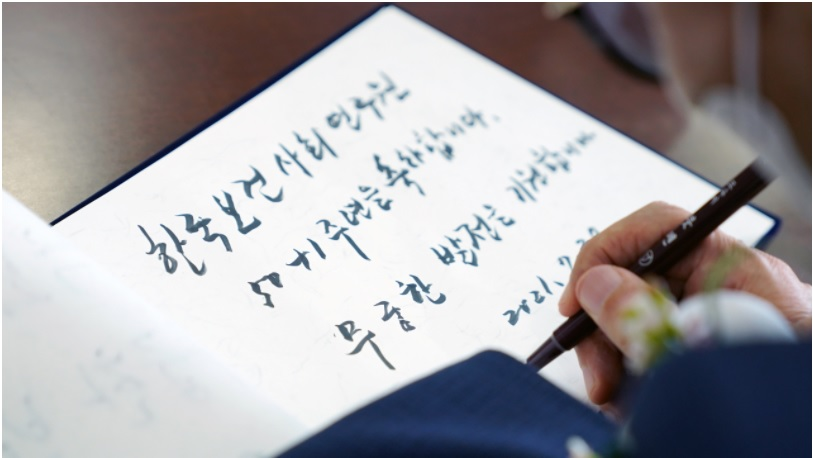 한국보건사회연구원
50기 주년을 축하합니다.
무궁한 발전을 기원합니다
2021. 7. 20